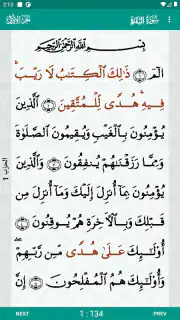 2:13
سُورَةُ البَقَرَةِ
بِسْمِ اللَّهِ الرَّحْمَٰنِ الرَّحِيمِ
الٓمٓ ۝١ ذَٰلِكَ ٱلْكِتَٰبُ لَا رَيْبَ ۛ
فِيهِ ۛ هُدًى لِّلْمُتَّقِينَ ۝٢ ٱلَّذِينَ
يُؤْمِنُونَ بِٱلْغَيْبِ وَيُقِيمُونَ ٱلصَّلَوٰةَ
وَمِمَّا رَزَقْنَٰهُمْ يُنفِقُونَ ۝٣ وَٱلَّذِينَ
يُؤْمِنُونَ بِمَآ أُنزِلَ إِلَيْكَ وَمَآ أُنزِلَ مِن
قَبْلِكَ وَبِٱلْءَاخِرَةِ هُمْ يُوقِنُونَ ۝٤
أُو۟لَٰٓئِكَ عَلَىٰ هُدًى مِّن رَّبِّهِمْ ۖ
وَأُو۟لَٰٓئِكَ هُمُ ٱلْمُفْلِحُونَ ۝٥ إِنَّ
الحزب 1
NEXT
1 : 134
PREV